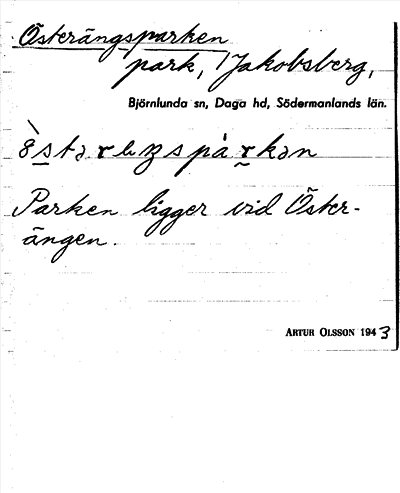 Österängsparken
park, Jakobsberg,
Björnlunda sn, Daga hd, Södermanlands län.
Parken ligger vid Öster-
ängen.
ARTUR OLSSON 1943